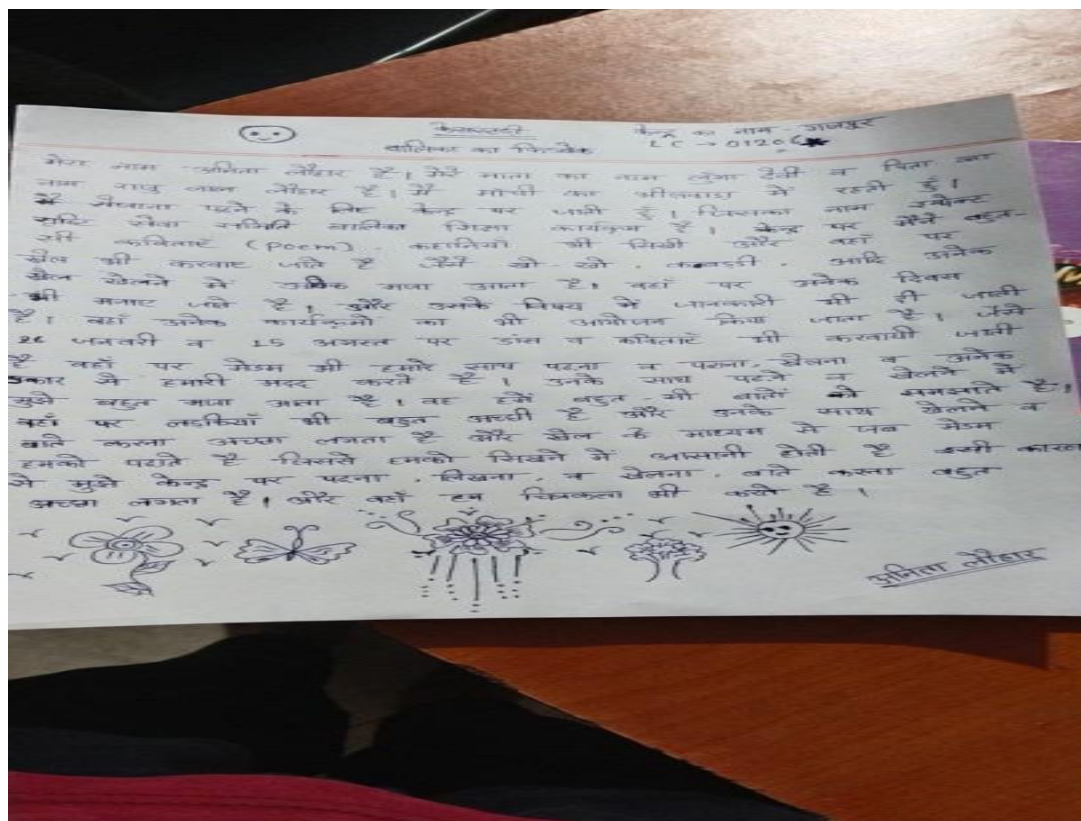 केसस्टडी केन्द्र का नाम - गजपुर
बालिका का फिडबेक LC → 01206
मेरा नाम अनिता लौहार है। मेरे माता का नाम लुंगा देवी व पिता का
नाम राजु लाल लौहार है। मैं मोची का भीलवाडा में रहती हूँ।
मैं रोजाना पढने के लिए केन्द्र पर जाती हूँ। जिसका नाम
सृष्टि सेवा समिति बालिका शिक्षा कार्यक्रम है। केन्द्र पर मैंने बहुत-
सी कविताएं (Poem), कहानियां भी सिखी और वहाँ पर
खेल भी करवाए जाते है जैसे खो-खो, कबड्डी, आदि अनेक
खेल खेलने में अधिक मजा आता है। वहां पर अनेक दिवस
भी मनाए जाते है। और उसके विषय में जानकारी भी दी जाती
है। वहाँ अनेक कार्यक्रमो का भी आयोजन किया जाता है। जैसे
26 जनवरी व 15 अगस्त पर डांस व कविताएं भी करवायी जाती
है वहाँ पर मेडम भी हमारे साथ पढना व पढाना, खेलना व अनेक
प्रकार से हमारी मदद करते है। उनके साथ पढने व खेलने में
मुझे बहुत मजा आता है। वह हमें बहुत-सी बातों को समझाते है।
वहाँ पर लडकियाँ भी बहुत अच्छी है और उनके साथ खेलने व
बाते करना अच्छा लगता है और खेल के माध्यम से जब मेडम
हमको पढाते है जिससे हमको सिखने में आसानी होती है इसी कारण
से मुझे केन्द्र पर पढना, लिखना, व खेलना, बाते करना बहुत
अच्छा लगता है। और वहाँ हम चित्रकला भी करते है।
अनिता लौहार